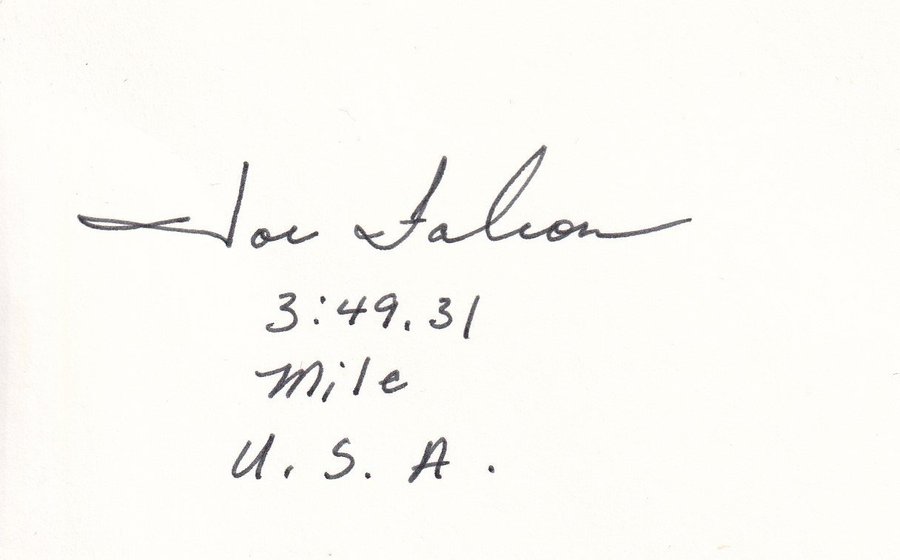 Joe Falcon
3:49.31
Mile
U.S.A.